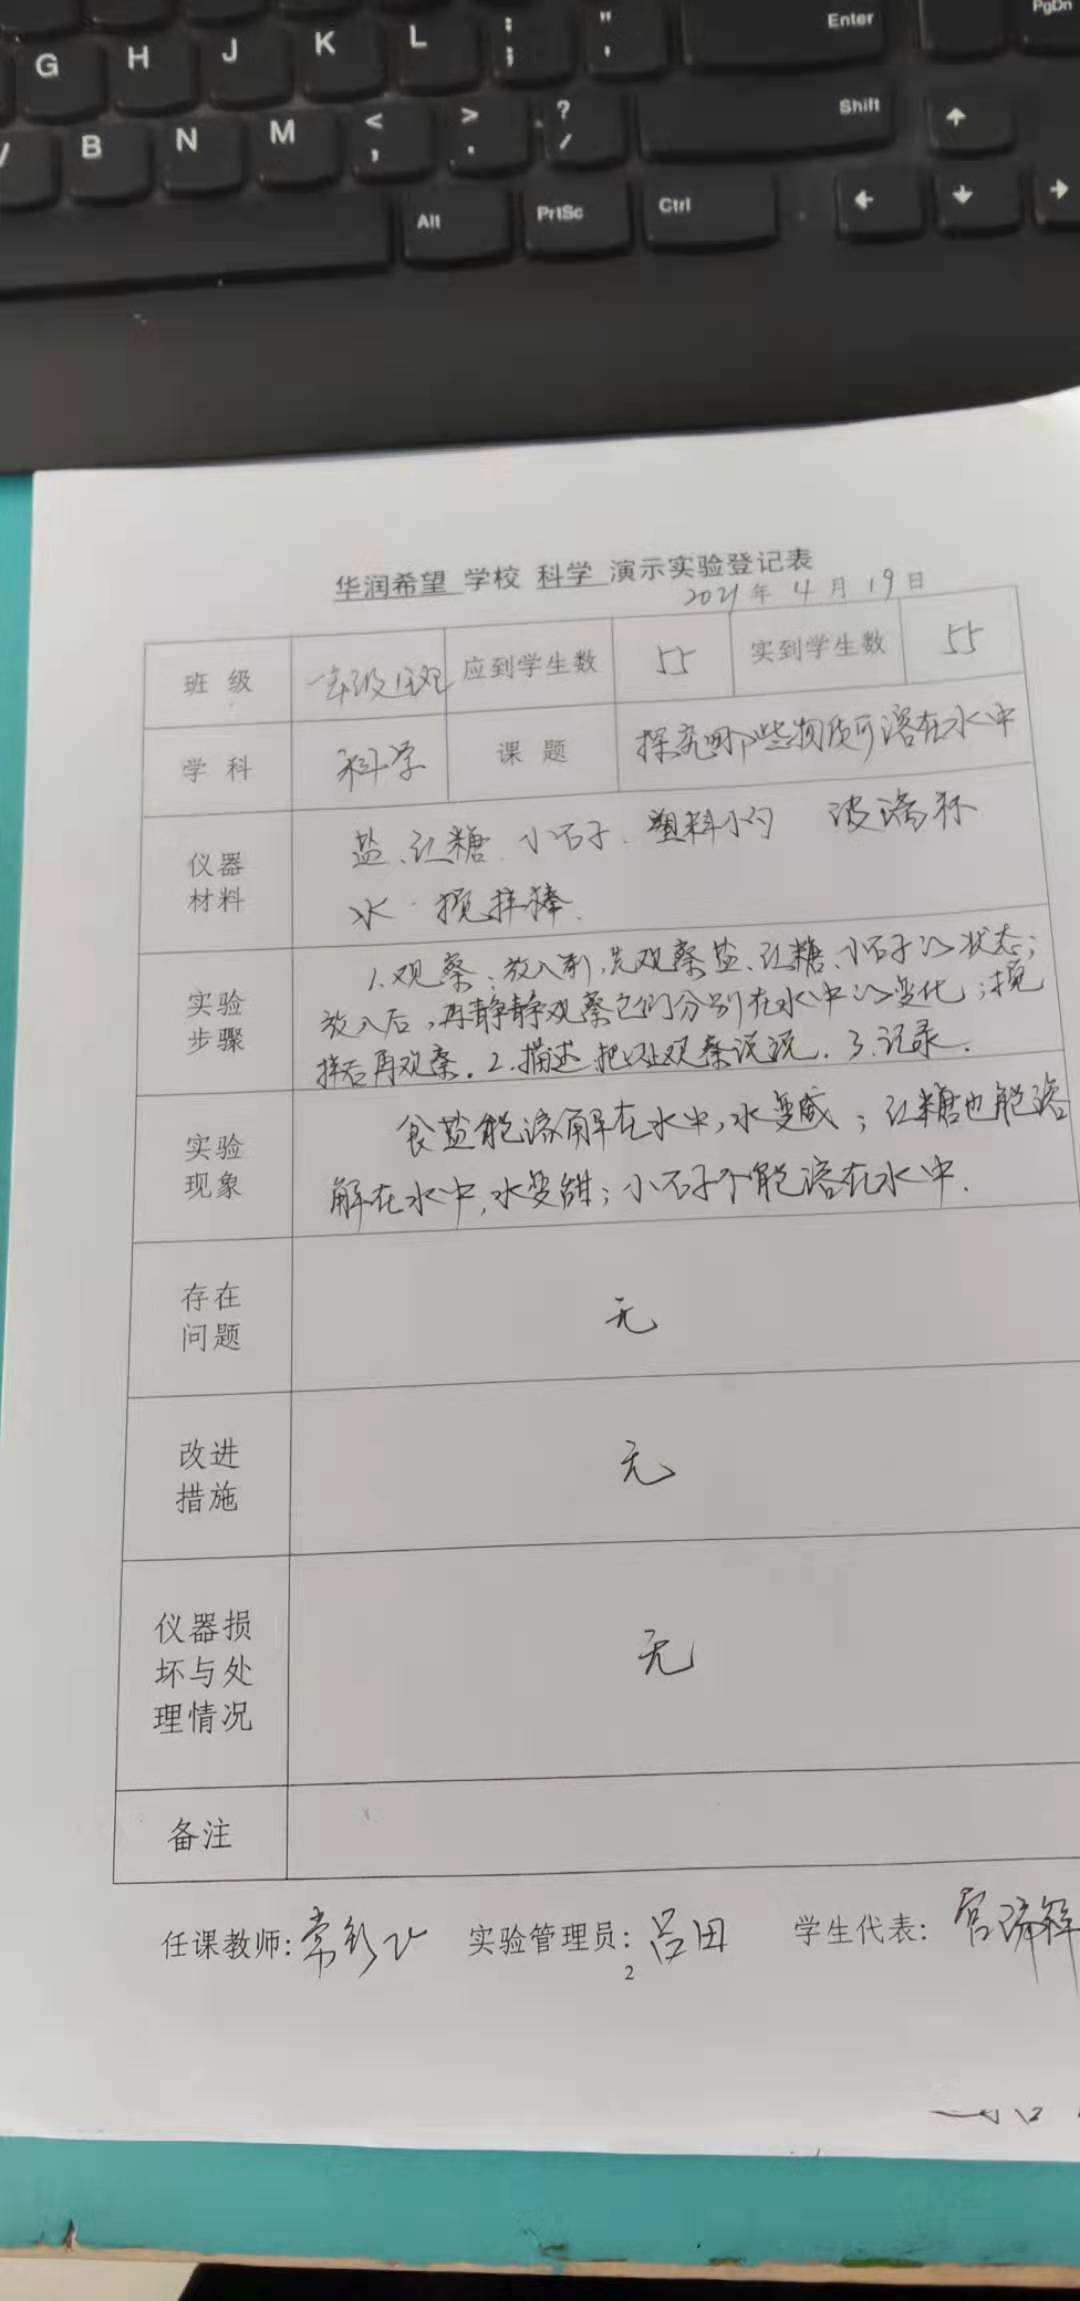 G H J K L : ; " ' Enter PgDn
V B N M < , > . ? / Shift ↑
Alt PrtSc Ctrl ← ↓ →
华润希望 学校 科学 演示实验登记表
2021年 4月 19日
班 级 一年级 班 应到学生数 55 实到学生数 55
学 科 科学 课 题 探究哪些物质可溶在水中
仪器
材料
盐、红糖、小石子、塑料小勺 玻璃杯
水、搅拌棒.
实验
步骤
1.观察:放入前,先观察盐、红糖、小石子的状态;
放入后,再静静观察它们分别在水中的变化;搅
拌后再观察. 2.描述 把以上观察说说. 3.记录.
实验
现象
食盐能溶解在水中,水变咸;红糖也能溶
解在水中,水变甜;小石子不能溶在水中.
存在
问题
无
改进
措施
无
仪器损
坏与处
理情况
无
备注
任课教师:常 实验管理员:吕田 学生代表:
2